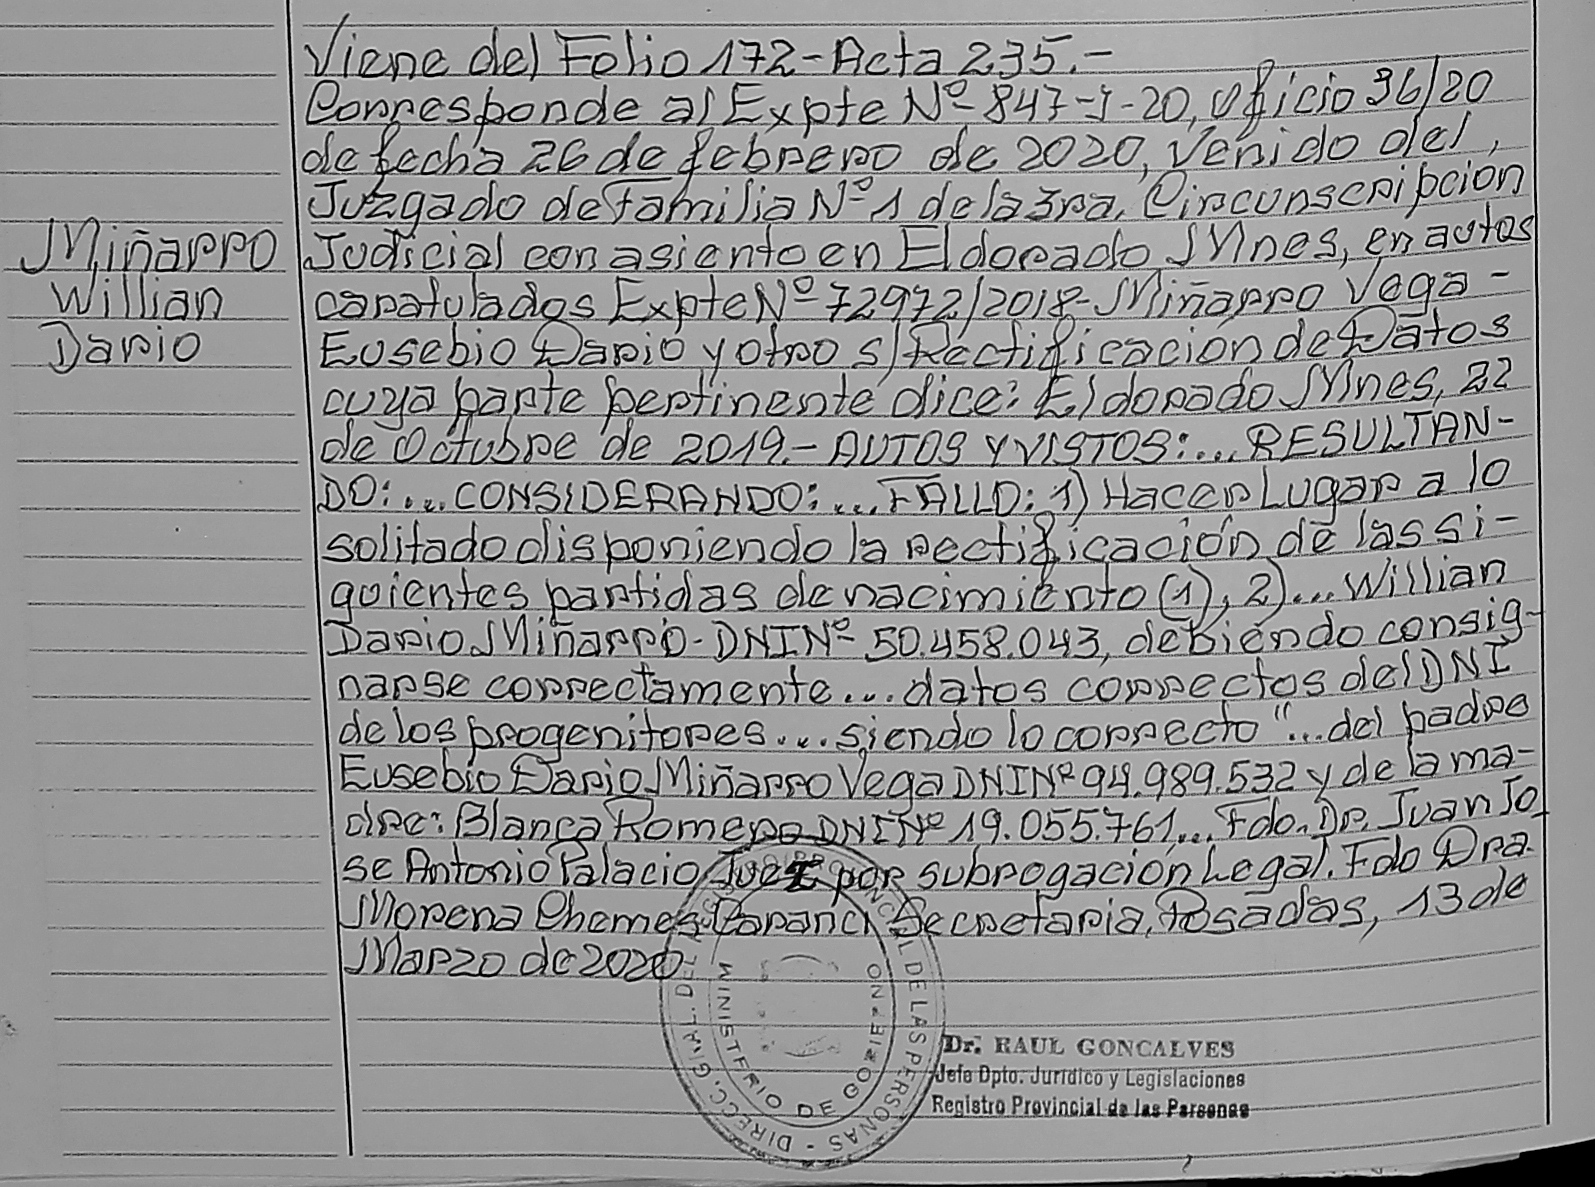 Viene del Folio 172-Acta 235.-
Corresponde al Expte Nº 847-J-20, Oficio 36/20
de fecha 26 de febrero de 2020, Venido del,
Juzgado de familia Nº 1 de la 3ra. Circunscripcion
Miñarro
Willian
Dario
Judicial con asiento en Eldorado Mnes, en autos
caratulados Expte Nº 72972/2018-Miñarro Vega-
Eusebio Dario y otro s/Rectificacion de Datos
cuya parte pertinente dice: Eldorado Mnes, 22
de Octubre de 2019.- AUTOS Y VISTOS:... RESULTAN-
DO:... CONSIDERANDO:... FALLO: 1) Hacer Lugar a lo
solitado disponiendo la rectificación de las si-
guientes partidas de nacimiento (1), 2)... Willian
Dario Miñarro-DNI Nº 50.458.043, debiendo consig-
narse correctamente... datos correctos del DNI
de los progenitores... siendo lo correcto "... del padre
Eusebio Dario Miñarro Vega DNI Nº 94.989.532 y de la ma-
dre: Blanca Romero DNI Nº 19.055.761... Fdo. Dr. Juan Jo-
se Antonio Palacio, Juez por subrogación Legal. Fdo Dra.
Morena Chemes Secretaria, Posadas, 13 de
Marzo de 2020
DIRECC. GRAL. DEL REGISTRO PROVINCIAL DE LAS PERSONAS -
MINISTERIO DE GOBIERNO
Dr. RAUL GONCALVES
Jefe Dpto. Jurídico y Legislaciones
Registro Provincial de las Personas